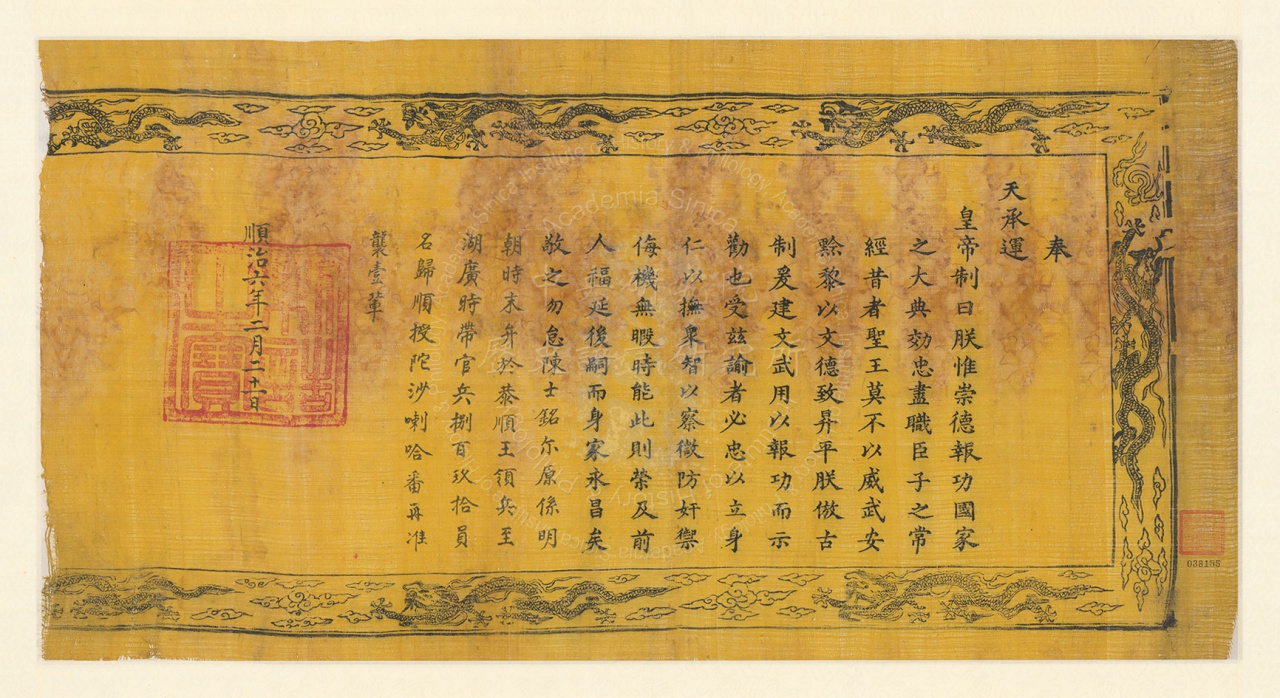 奉
天承運
皇帝制曰朕惟崇德報功國家
之大典効忠盡職臣子之常
經昔者聖王莫不以威武安
黔黎以文德致昇平朕倣古
制爰建文武用以報功而示
勸也受玆諭者必忠以立身
仁以撫衆智以察微防奸禦
侮機無暇時能此則榮及前
人福延後嗣而身家永昌矣
敬之勿怠陳士銘尓原係明
朝時末弁於恭順王領兵至
湖廣時帶官兵捌百玖拾員
名歸順授陀沙喇哈番再准
襲壹輩
順治六年二月二十二日
038155